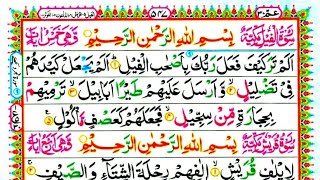 سُوْرَةُ الْفِيْلِ مَكِّيَّةٌ بِسْمِ اللّٰهِ الرَّحْمٰنِ الرَّحِيْمِ وَهِيَ خَمْسُ اٰيَاتٍ
اَلَمْ تَرَ كَيْفَ فَعَلَ رَبُّكَ بِاَصْحٰبِ الْفِيْلِ اَلَمْ يَجْعَلْ كَيْدَهُمْ
فِيْ تَضْلِيْلٍ وَّ اَرْسَلَ عَلَيْهِمْ طَيْرًا اَبَابِيْلَ تَرْمِيْهِمْ
بِحِجَارَةٍ مِّنْ سِجِّيْلٍ فَجَعَلَهُمْ كَعَصْفٍ مَّاْكُوْلٍ
سُوْرَةُ قُرَيْشٍ مَكِّيَّةٌ بِسْمِ اللّٰهِ الرَّحْمٰنِ الرَّحِيْمِ
لِاِيْلٰفِ قُرَيْشٍ اٖلٰفِهِمْ رِحْلَةَ الشِّتَآءِ وَ الصَّيْفِ